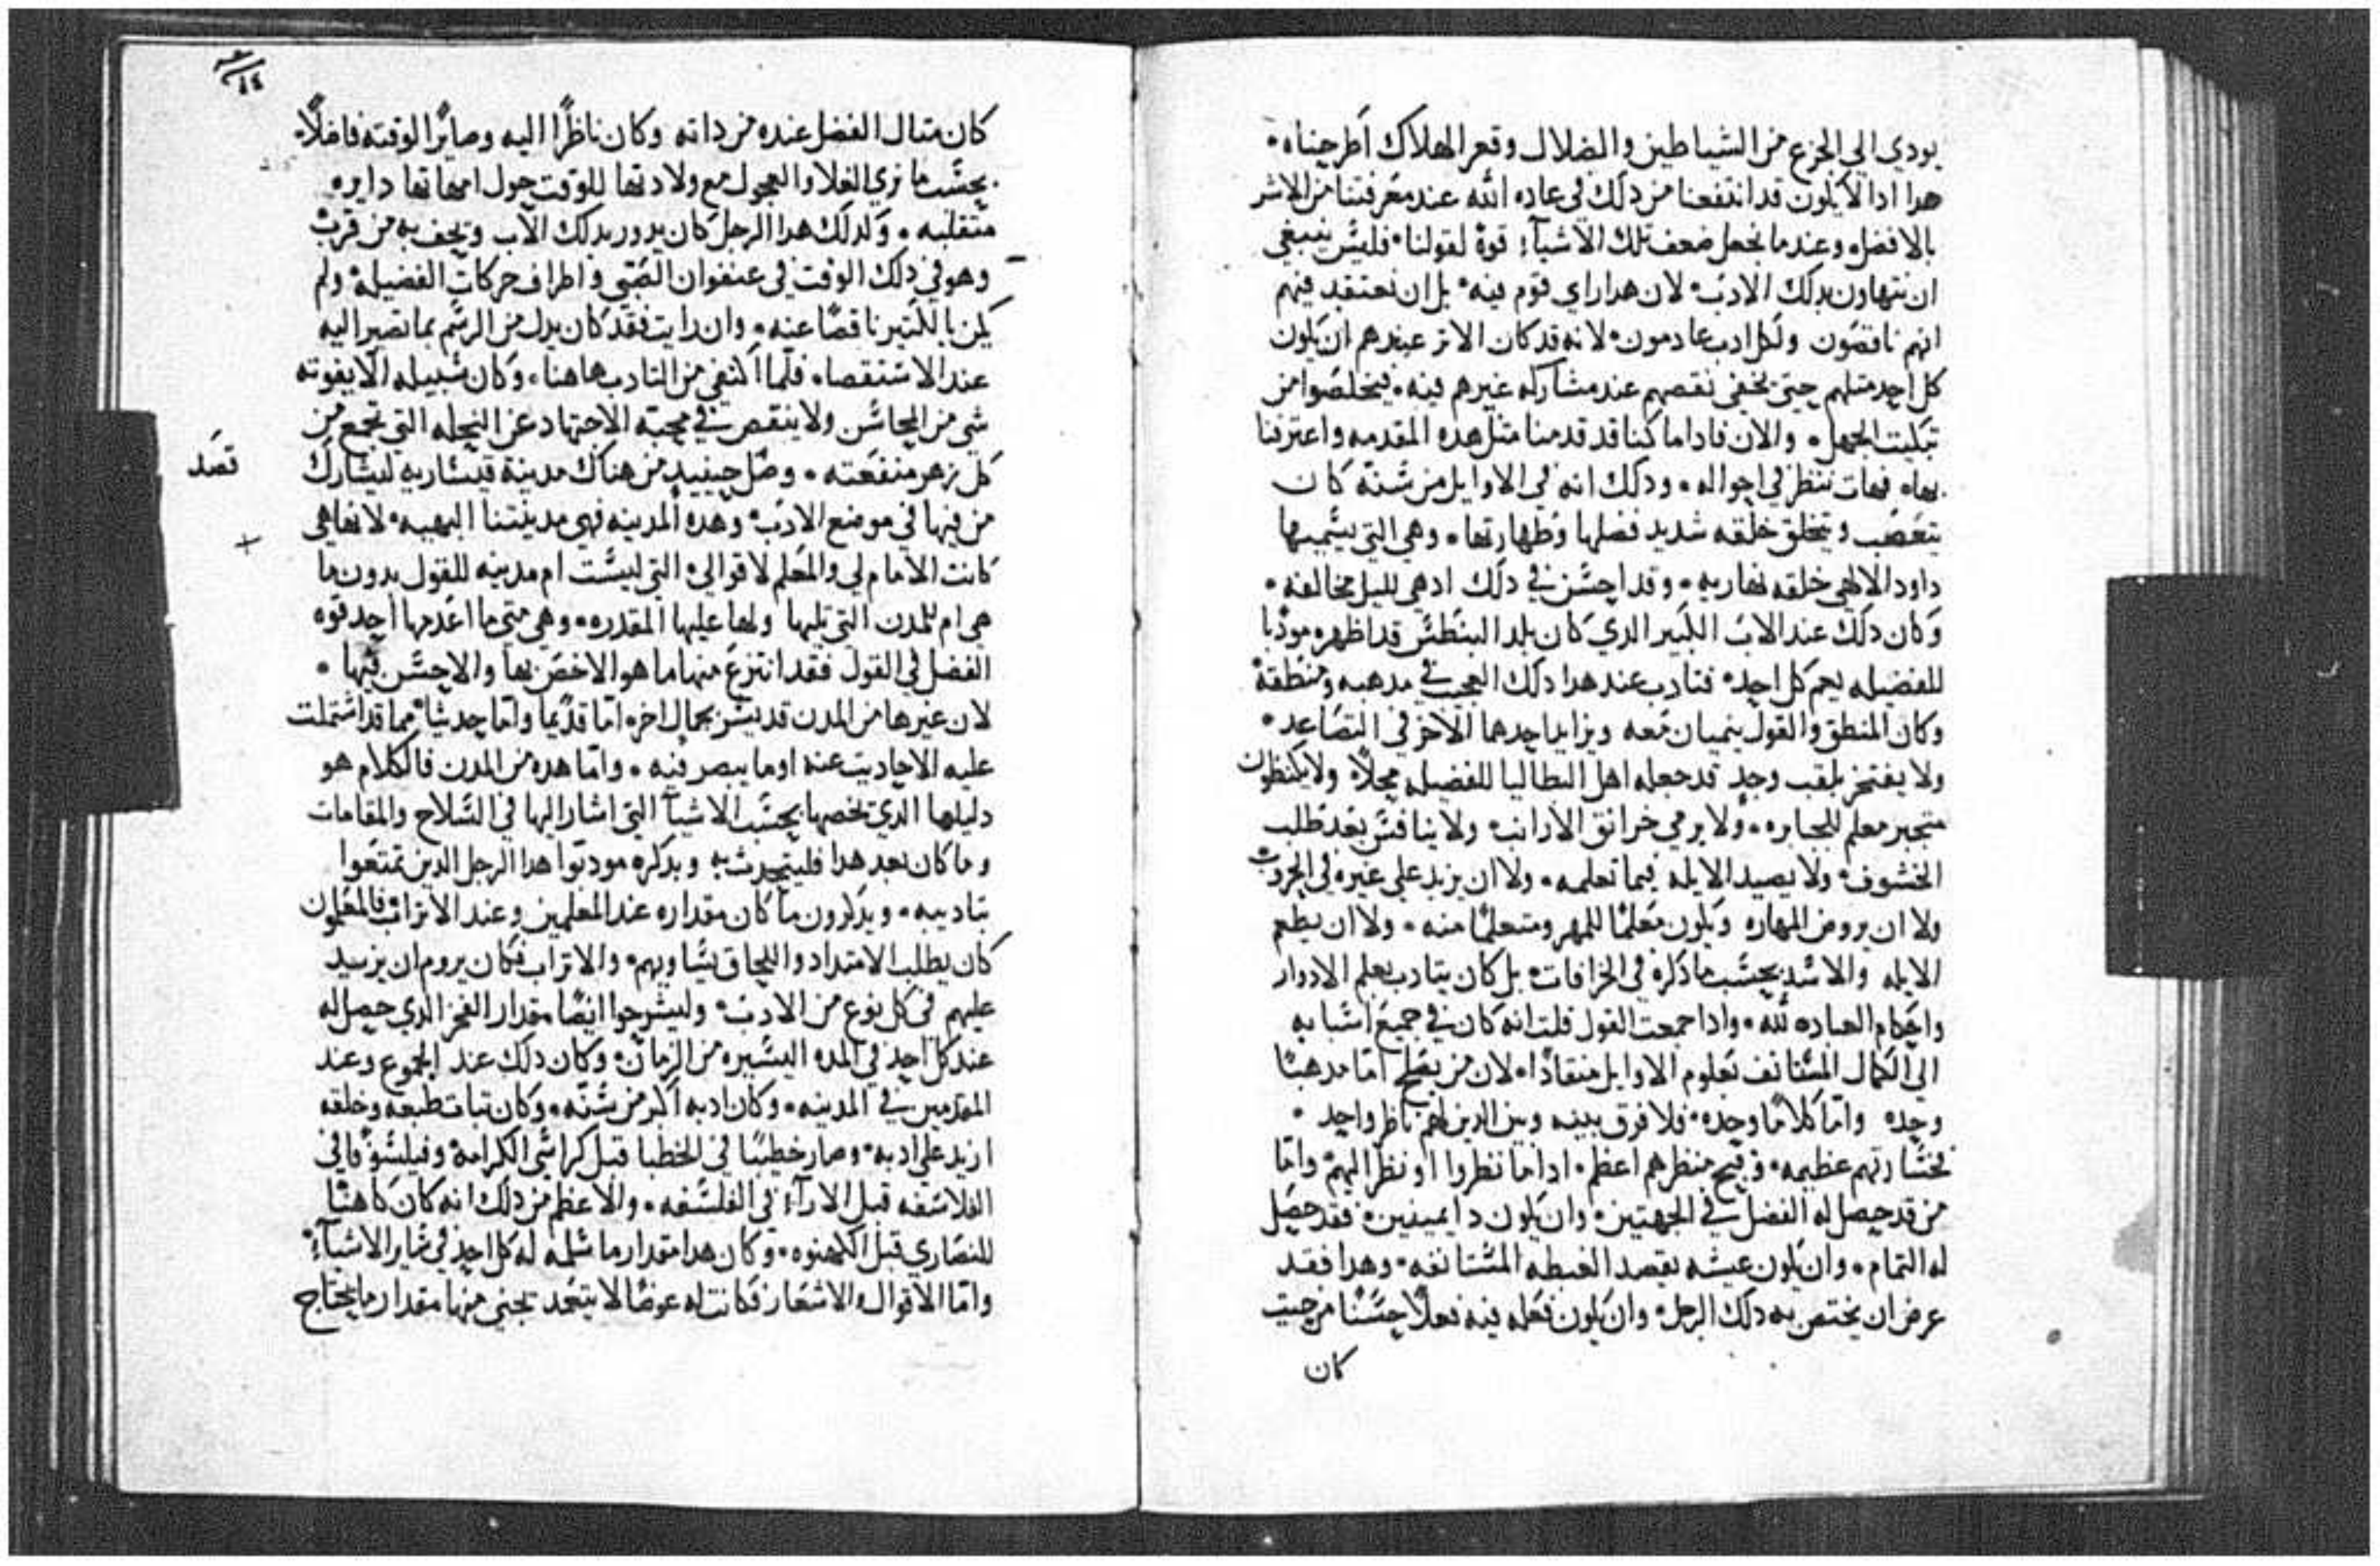 يودي الي الجزع من الشياطين والضلال وقعر الهلاك اطرحناه
هدا ادا لا يكون قد انتفعنا من دلك في عاده الله عند معرفتنا من الاشر
بالافضل وعندما نجعل ضعف تلك الاشياء قوة لقولنا فليس ينبغي
ان نتهاون بدلك الادب لان هدا راي قوم فيه بل ان نعتقد فيهم
انهم ناقصون ولكل ادب عادمون لانه قد كان الاثر عندهم ان يكون
كل احد مثلهم حتى يخفي نقصهم عند مشاركه غيرهم فيه فيتخلصوا من
تبكيت الجهل والان فادا ما كنا قد قدمنا مثل هده المقدمه واعترفنا
بها فهات ننظر في احواله ودلك انه في الاوايل من سنه كان
يتعصب ويتخلق خلقه شديد فضلها وطهارتها وهي التي يسميها
داود الالهي خلقه نهاريه وقد احسن في دلك اد هي لليل مخالفه
وكان دلك عند الاب الكبير الدي كان بلد البنطس قد اظهره مودبا
للفضيله يعم كل احد فتادب عند هدا دلك العجيب في مدهبه ومنطقه
وكان المنطق والقول ينميان معه ويزايد احدهما الاخر في التصاعد
ولا يفتخر بلقب وحد قد جعله اهل التطاليا للفضيله محلا ولا يكنطون
متجبر معلم للجبابره ولا يرمي خرانق الارانب ولا ينافس بعد طلب
الخشوف ولا يصيد الايله فيما تعلمه ولا ان يزيد علي غيره في الحروب
ولا ان يروض المهاره ويكون معلما للمهر ومتعلما منه ولا ان يطعم
الايله والاسد بحسب ما دكره في الخرافات بل كان يتادب بعلم الادوار
واحكام العباده لله وادا جمعت القول قلت انه كان في جميع اسبابه
الي الكمال المستانف بعلوم الاوايل منقادا لان من يفلح اما مدهبا
وحده واما كلاما وحده فلا فرق بينه وبين الدين لهم ناظر واحد
فخسارتهم عظيمه وقبح منظرهم اعظم ادا ما نظروا او نظر اليهم واما
من قد حصل له الفضل في الجهتين وان يكون دا يمينين فقد حصل
له التمام وان يكون عيشه بقصد الغبطه المستانفه وهدا فقد
عرض ان يختص به دلك الرجل وان يكون فعله فيه فعلا حسنا من حيث
كان
كان مثال الفضل عنده من داته وكان ناظرا اليه وصايرا لوقته فاضلا
بحسب ما نري الفلا والعجول مع ولادتها للوقت حول امهاتها دايره
متقلبه ولدلك هدا الرجل كان يدور بدلك الاب ويحف به من قرب
وهو في دلك الوقت في عنفوان الصبي واطراف حركات الفضيله ولم
يكن بالكتير ناقصا عنه وان رايت فقد كان يدل من الرسم بما تصير اليه
عند الاستقصا فلما اكتفي من التادب هاهنا وكان سبيله الا يفوته
شي من المحاسن ولا ينقص في محبة الاجتهاد عن النحله التي تجمع من
كل زهر منفعته وصل حينيد من هناك مدينة قيساريه ليشارك
قصد
من فيها في موضع الادب وهده المدينه فهي مدينتنا البهيه لانها هي
كانت الامام لي والمعلم لاقوالي التي ليست ام مدينه للقول بدون ما
هي ام للمدن التي تليها ولها عليها المقدره وهي متى ما اعدمها احد قوه
الفضل في القول فقد انتزع منها ما هو الاخص بها والاحسن فيها
لان غيرها من المدن قد يسر بجمال اخر اما قديما واما حديثا مما قد اشتملت
عليه الاحاديث عنه او ما يبصر فيه واما هده من المدن فالكلام هو
دليلها الدي يخصها بحسب الاشيا التي اشار اليها في السلاح والمقامات
وما كان بعد هدا فليتحدث به ويدكره مودبوا هدا الرجل الدين تمتعوا
بتاديبه ويدكرون ما كان مقداره عند المعلمين وعند الاتراب فالمعلمون
كان يطلب الامتداد واللحاق بتساويهم والاتراب فكان يروم ان يزيد
عليهم في كل نوع من الادب وليشرحوا ايضا مقدار الفخر الدي حصل له
عند كل احد في المده اليسيره من الزمان وكان دلك عند الجموع وعند
المقدمين في المدينه وكان ادبه اكبر من سنه وكان تبات طبعه وخلقه
ازيد علي ادبه وصار خطيبا في الخطبا قبل كراسي الكرامه وفيلسوفا في
الفلاسفه قبل الاراء في الفلسفه والاعظم من دلك انه كان كاهنا
للنصاري قبل الكهنوه وكان هدا مقدار ما سلمه له كل احد في ساير الاشياء
واما الاقوال والاشعار فكانت له عوضا لا يتعمد يجني منها مقدار ما يحتاج